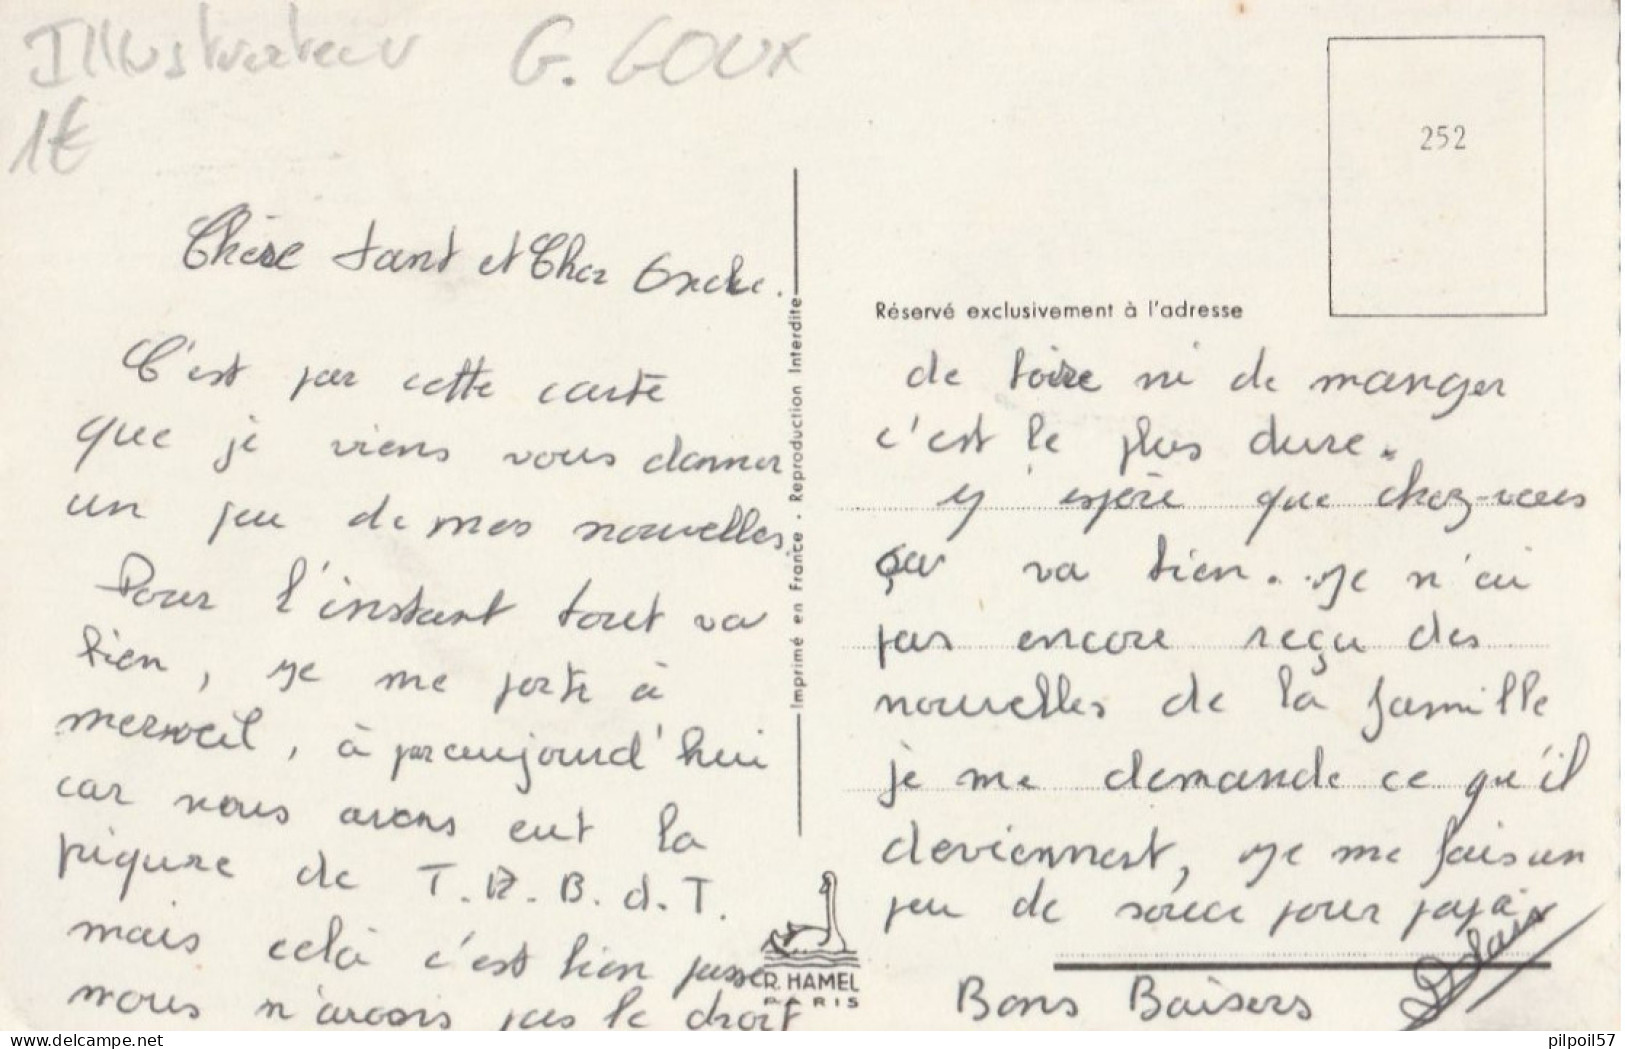 Illustrateur G. GOUX
1€
252
Chère tant et Cher Oncle.
C'est par cette carte
que je viens vous donner
un peu de mes nouvelles
Pour l'instant tout va
bien, je me porte à
merveil, à par aujourd'hui
car nous avons eut la
piqure de T.A.B.d.T.
mais celà c'est bien passer
nous n'avons pas le droit
Imprimé en France - Reproduction Interdite
R. HAMEL
PARIS
Réservé exclusivement à l'adresse
de boire ni de manger
c'est le plus dure.
j'espère que chez-vous
ça va bien. je n'ai
pas encore reçu des
nouvelles de la famille
je me demande ce qu'il
deviennent, je me fais un
peu de souci pour papa
Bons Baisers
Alain
delcampe.net
pilpoil57